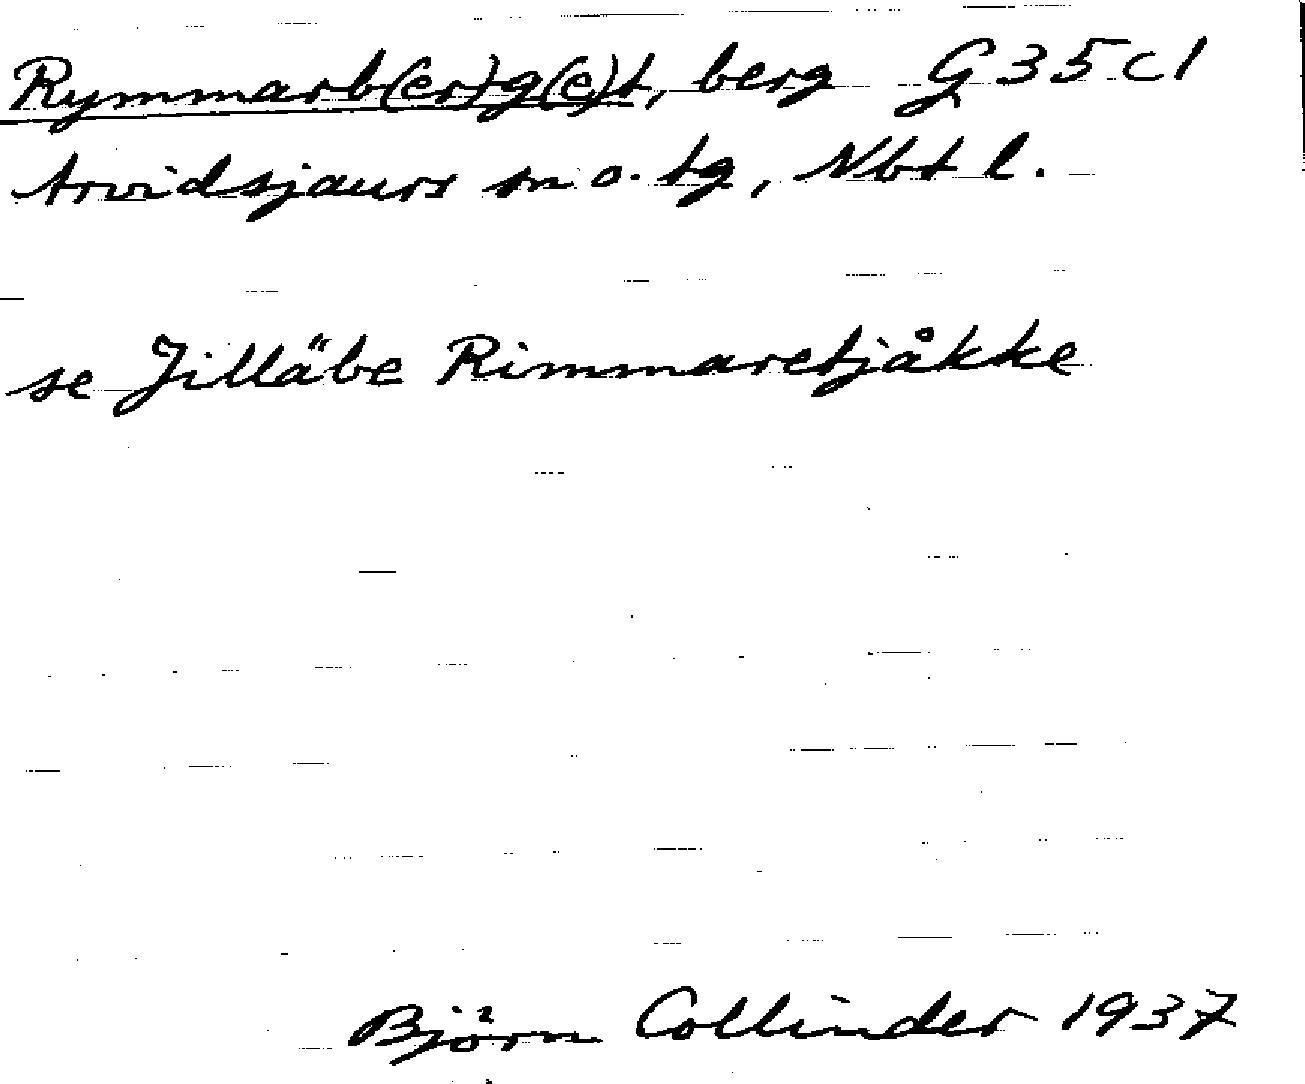 Rymmarb(er)g(e)t, berg G 35 c 1
Arvidsjaurs sn o. tg, Nbt l.
se Jilläbe Rimmaretjåkke
Björn Collinder 1937